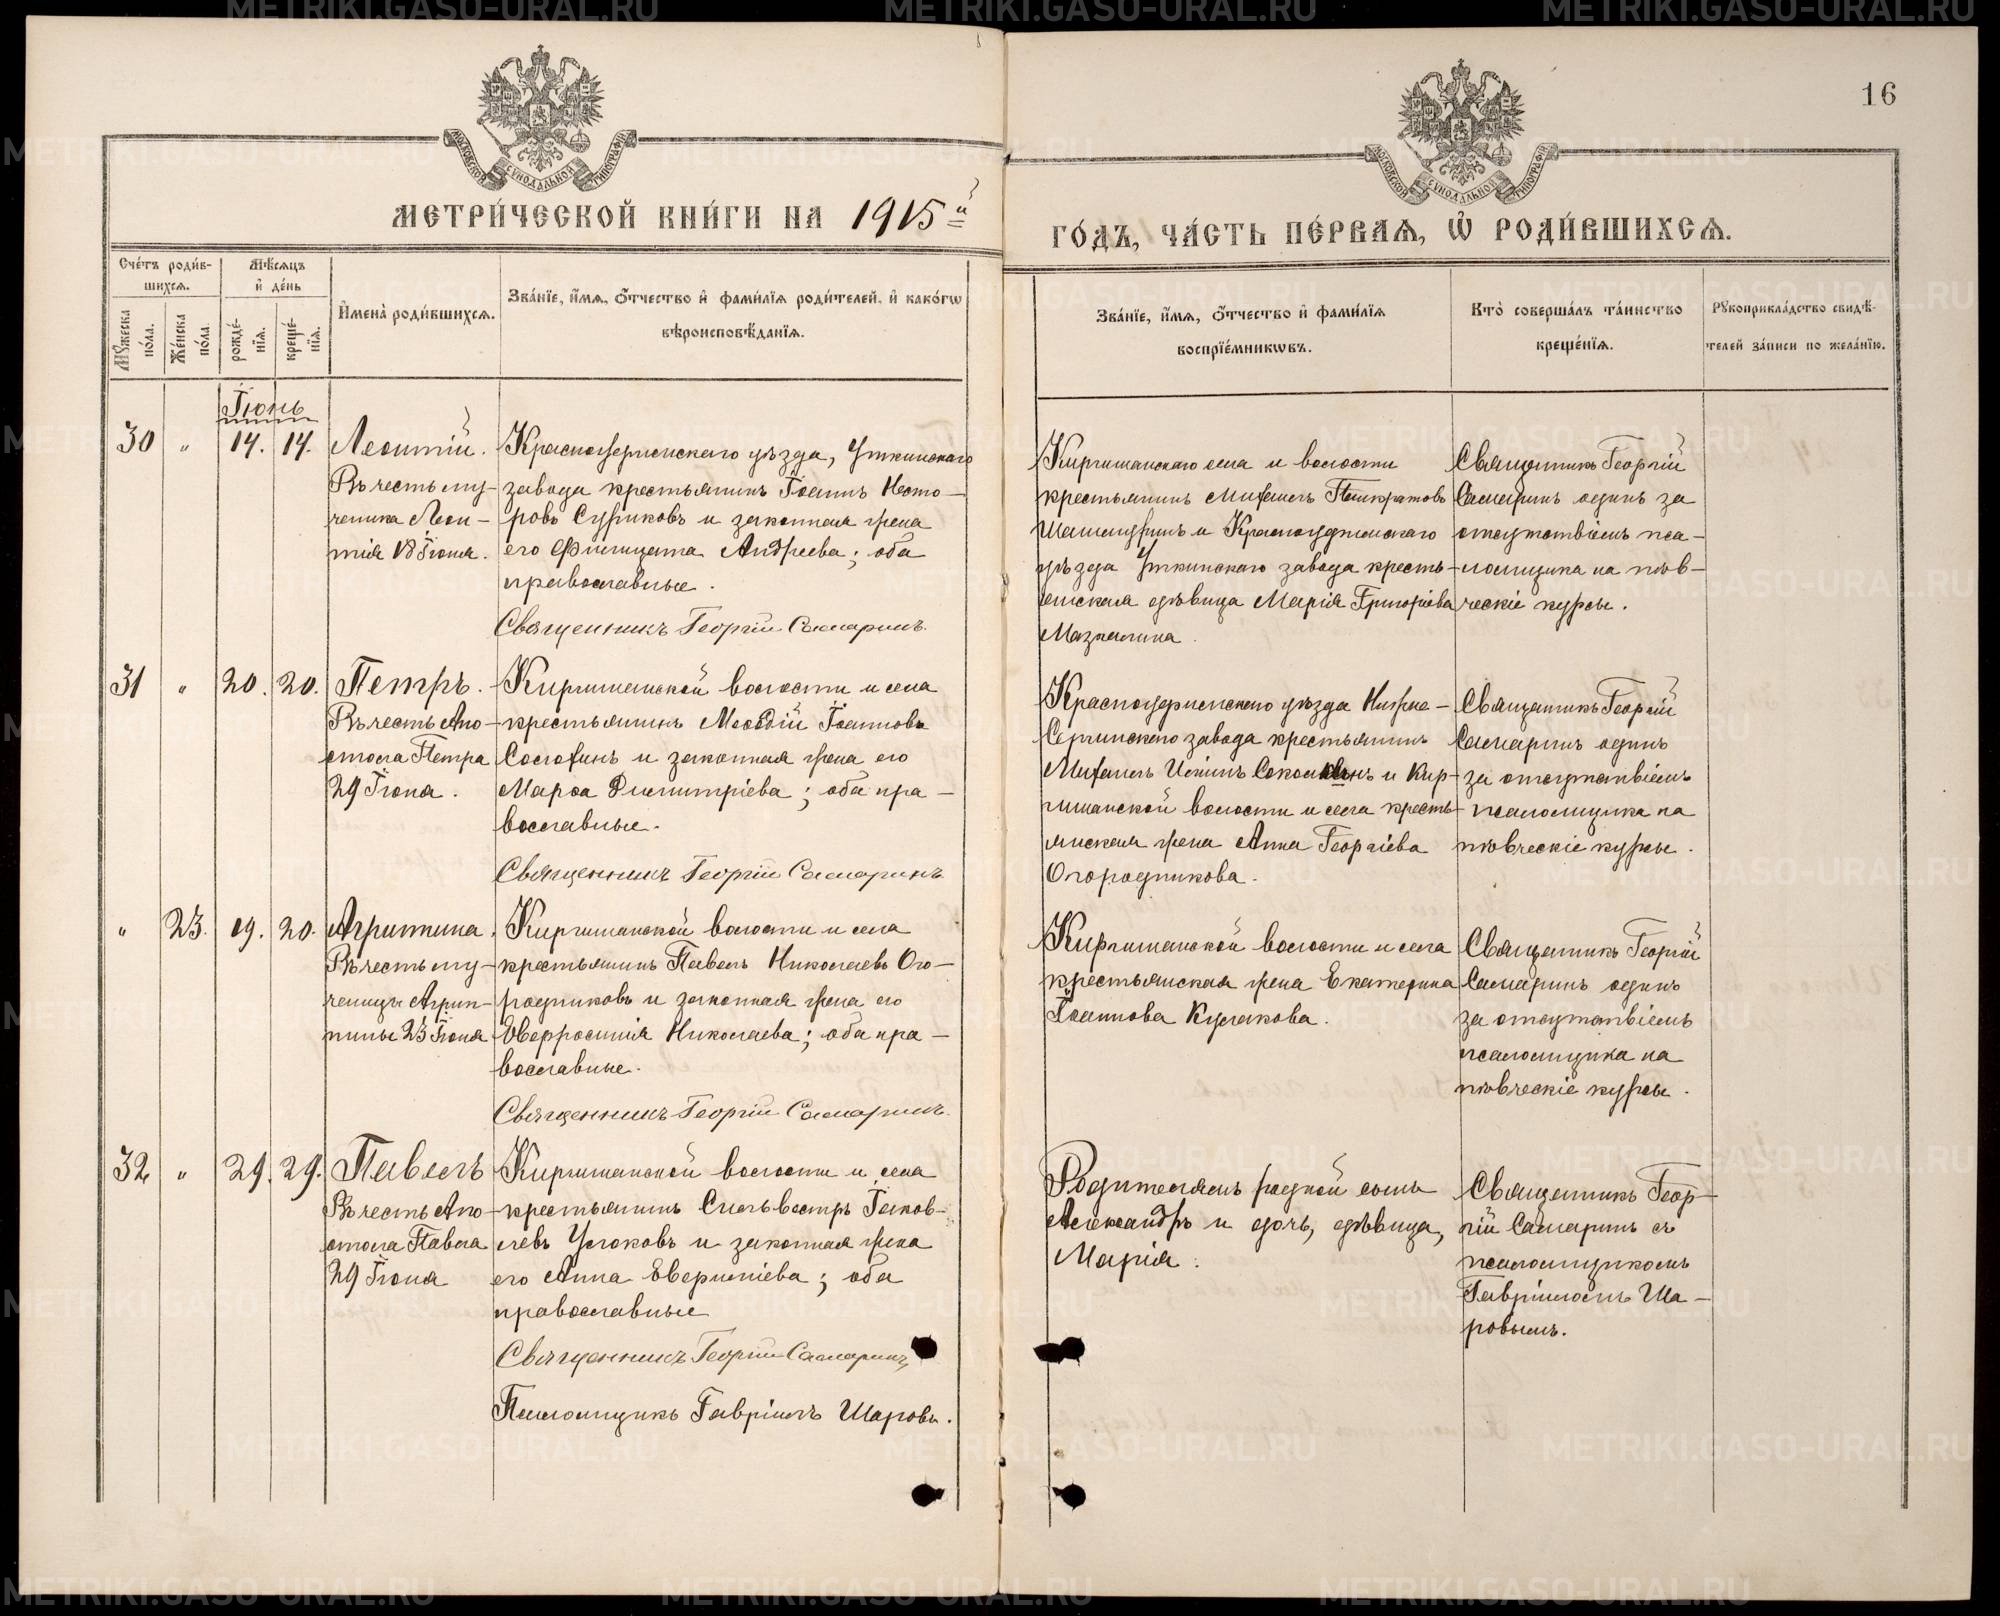 16
МОСКОВСКОЙ СѴНОДАЛЬНОЙ ТИПОГРАФІИ
МОСКОВСКОЙ СѴНОДАЛЬНОЙ ТИПОГРАФІИ
МЕТРИ́ЧЕСКОЙ КНИ́ГИ НА 1915й
ГО́ДЪ, ЧА́СТЬ ПЕ́РВАЯ, Ѡ҆ РОДИ́ВШИХСЯ.
Сче́тъ роди́в-
шихся.
Мѣ́сяцъ
и҆ де́нь
Му́жеска
по́ла.
Же́нска
по́ла.
рожде́-
нїя.
креще́-
нїя.
И҆мена̀ роди́вшихся.
Зва́нїе, и҆́мя, ѻ҆́тчество и҆ фами́лїя роди́телей, и҆ како́гѡ
вѣроисповѣ́данїя.
Зва́нїе, и҆́мя, ѻ҆́тчество и҆ фами́лїя
воспрїе́мникѡвъ.
Кто̀ соверша́лъ та́инство
креще́нїя.
Рꙋкоприкла́дство свидѣ́-
телей за́писи по жела́нїю.
Іюнь
30 " 14. 14. Леонтій.
Въ честь му-
ченика Леон-
тія 18 Іюня.
Красноуфимскаго уѣзда, Уткинскаго
завода крестьянинъ Іоаннъ Несто-
ровъ Суриковъ и законная жена
его Филицата Андреева; оба
православные.
Священникъ Георгій Самаринъ.
Киргишанскаго села и волости
крестьянинъ Михаилъ Панкратовъ
и Красноуфимскаго
уѣзда Уткинскаго завода кресть-
янская дѣвица Марія Григорьева
Мазналина.
Священникъ Георгій
Самаринъ одинъ за
отсутствіемъ пса-
ломщика на пѣв-
ческіе курсы.
31 " 20. 20. Петръ.
Въ честь Апо-
стола Петра
29 Іюня.
Киргишанской волости и села
крестьянинъ Меѳодій Іоанновъ
Солохинъ и законная жена его
Марѳа Димитріева; оба пра-
вославные.
Священникъ Георгій Самаринъ
Красноуфимскаго уѣзда Нижне-
Сергинскаго завода крестьянинъ
Михаилъ и Кир-
гишанской волости и села кресть-
янская жена Анна Георгіева
Огородникова.
Священникъ Георгій
Самаринъ одинъ
за отсутствіемъ
псаломщика на
пѣвческіе курсы.
" 23. 19. 20. Агриппина.
Въ честь му-
ченицы Агрип-
пины 23 Іюня
Киргишанской волости и села
крестьянинъ Павелъ Николаевъ Ого-
родниковъ и законная жена его
Евфросинія Николаева; оба пра-
вославные.
Священникъ Георгій Самаринъ.
Киргишанской волости и села
крестьянская жена Екатерина
Іоаннова Кулакова.
Священникъ Георгій
Самаринъ одинъ
за отсутствіемъ
псаломщика на
пѣвческіе курсы.
32 " 29. 29. Павелъ
Въ честь Апо-
стола Павла
29 Іюня
Киргишанской волости и села
крестьянинъ Сильвестръ Іаков-
левъ Углоковъ и законная жена
его Анна Евфиміева; оба
православные
Священникъ Георгій Самаринъ,
Псаломщикъ Гавріилъ Шаровъ.
Родителямъ родной сынъ
Александръ и дочь, дѣвица,
Марія.
Священникъ Геор-
гій Самаринъ съ
псаломщикомъ
Гавріиломъ Ша-
ровымъ.
METRIKI.GASO-URAL.RU